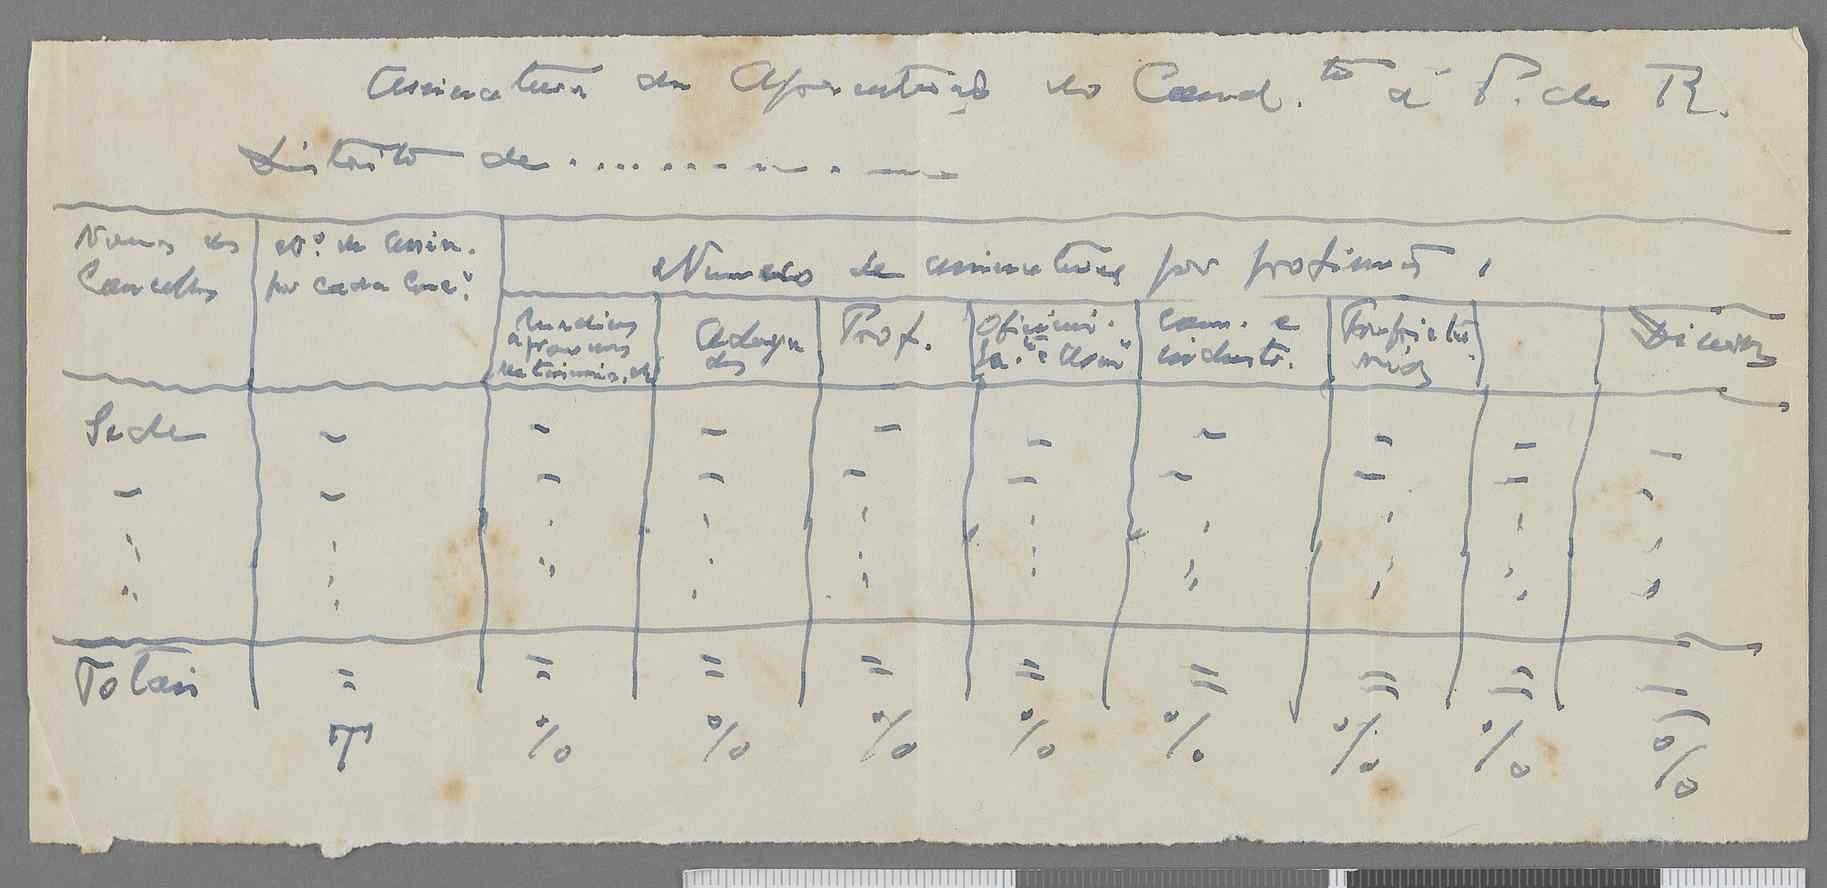 Assinaturas da Apresentação do Cand.to à P. da R.
Distrito de . . . . . . . . . .
Nomes dos
Concelhos
N.º de assin.
por cada Conc.º
Numero de assinaturas por profissões
Medicos
Advoga
dos
Prof.
Com. e
industr.
Proprietá
rios
Diversos
Sede
Totais
T
% % % % % % % %